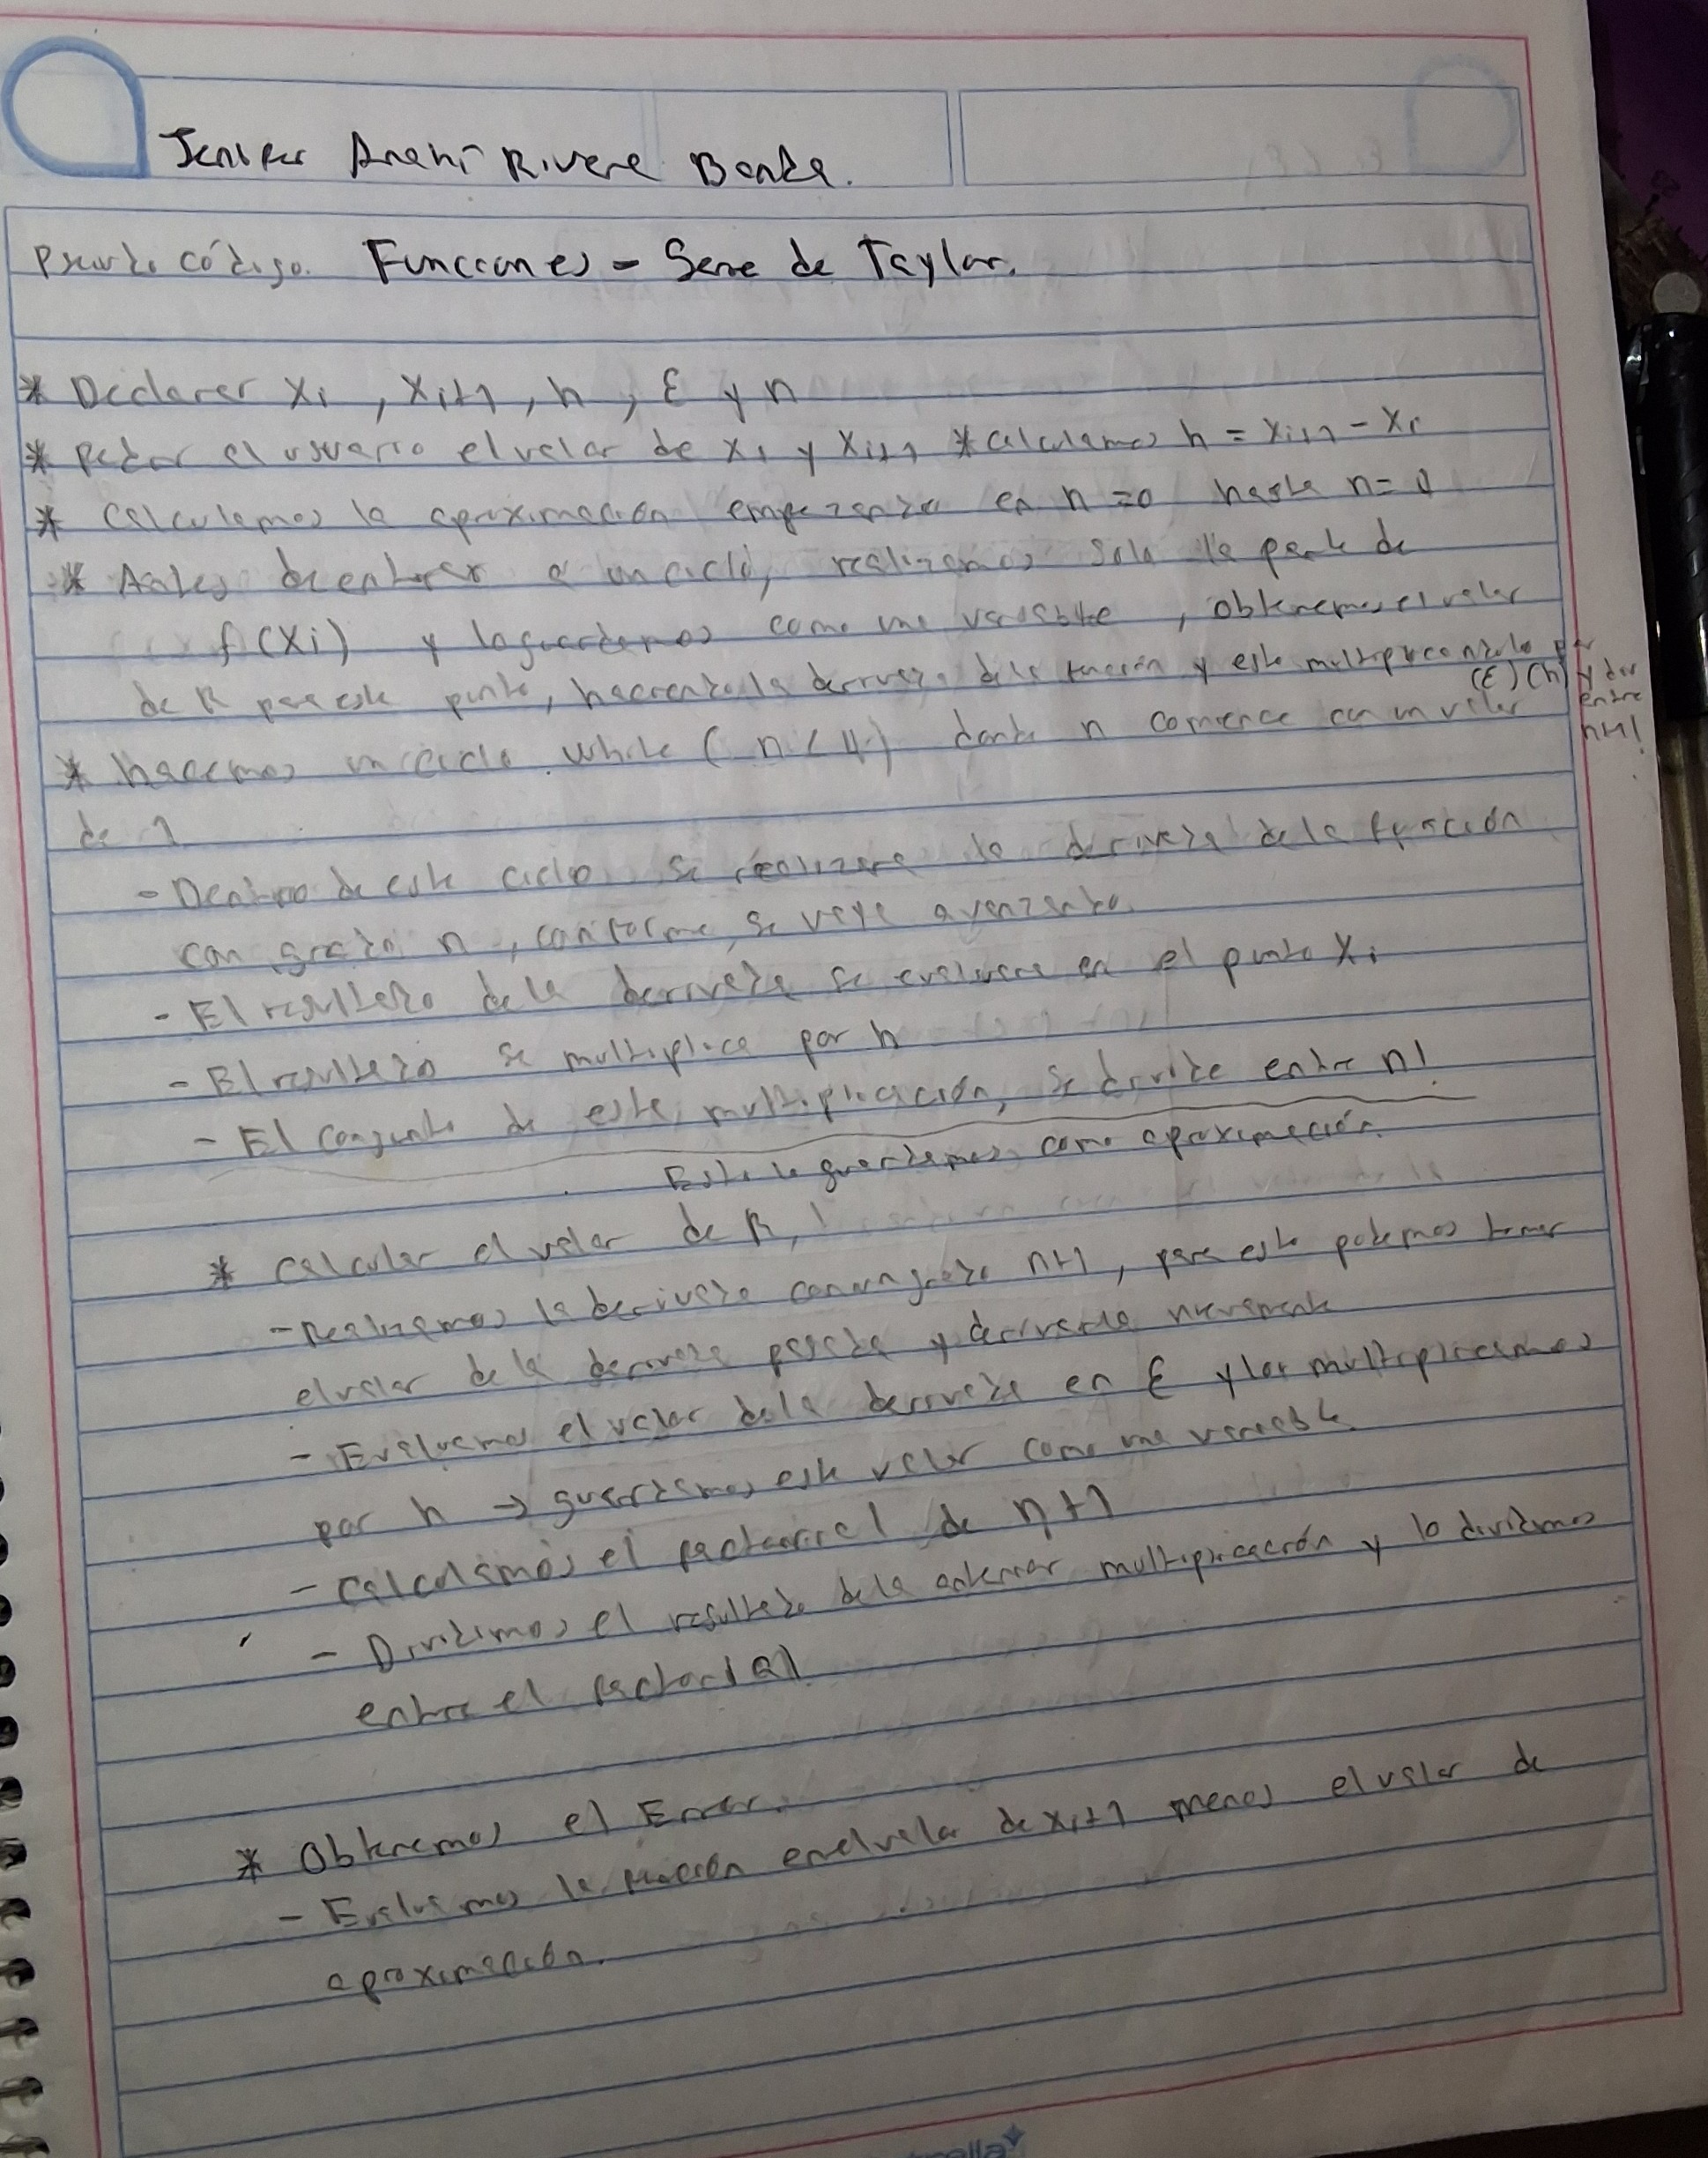 Jenifer Anahí Rivera Banda.
Pseudo código. Funciones - Serie de Taylor.
* Declarar Xi, Xi+1, h, ε y n
* Pedir al usuario el valor de Xi y Xi+1 * calculamos h = Xi+1 - Xi
* Calculamos la aproximación empezando en n=0 hasta n=
* Antes de entrar a un ciclo, realizamos solo la parte de
f(Xi) y lo guardamos como una variable, obtenemos el valor
de R para este punto, haciendo la derivada de la función y esto multiplicandolo por
(ε)(h) y div entre n+1!
* hacemos un ciclo while (n<4) donde n comience con un valor
de 1
- Dentro de este ciclo se realizara la derivada de la función
con grado n, conforme se vaya avanzando.
- El resultado de la derivada se evaluara en el punto Xi
- El resultado se multiplica por h
- El conjunto de esta multiplicación, se divide entre n!
Esto lo guardamos como aproximación.
* Calcular el valor de R,
- Realizamos la derivada con un grado n+1, para esto podemos tomar
el valor de la derivada pasada y derivarla nuevamente
- Evaluamos el valor de la derivada en ε y los multiplicamos
por h → guardamos este valor como una variable.
- Calculamos el factorial de n+1
- Dividimos el resultado de la anterior multiplicación y lo dividimos
entre el factorial
* Obtenemos el Error.
- Evaluamos la función en el valor de Xi+1 menos el valor de
aproximación.